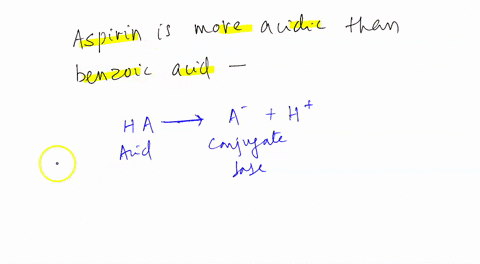 Aspirin is more acidic than
benzoic acid —
HA → A⁻ + H⁺
Acid Conjugate
base